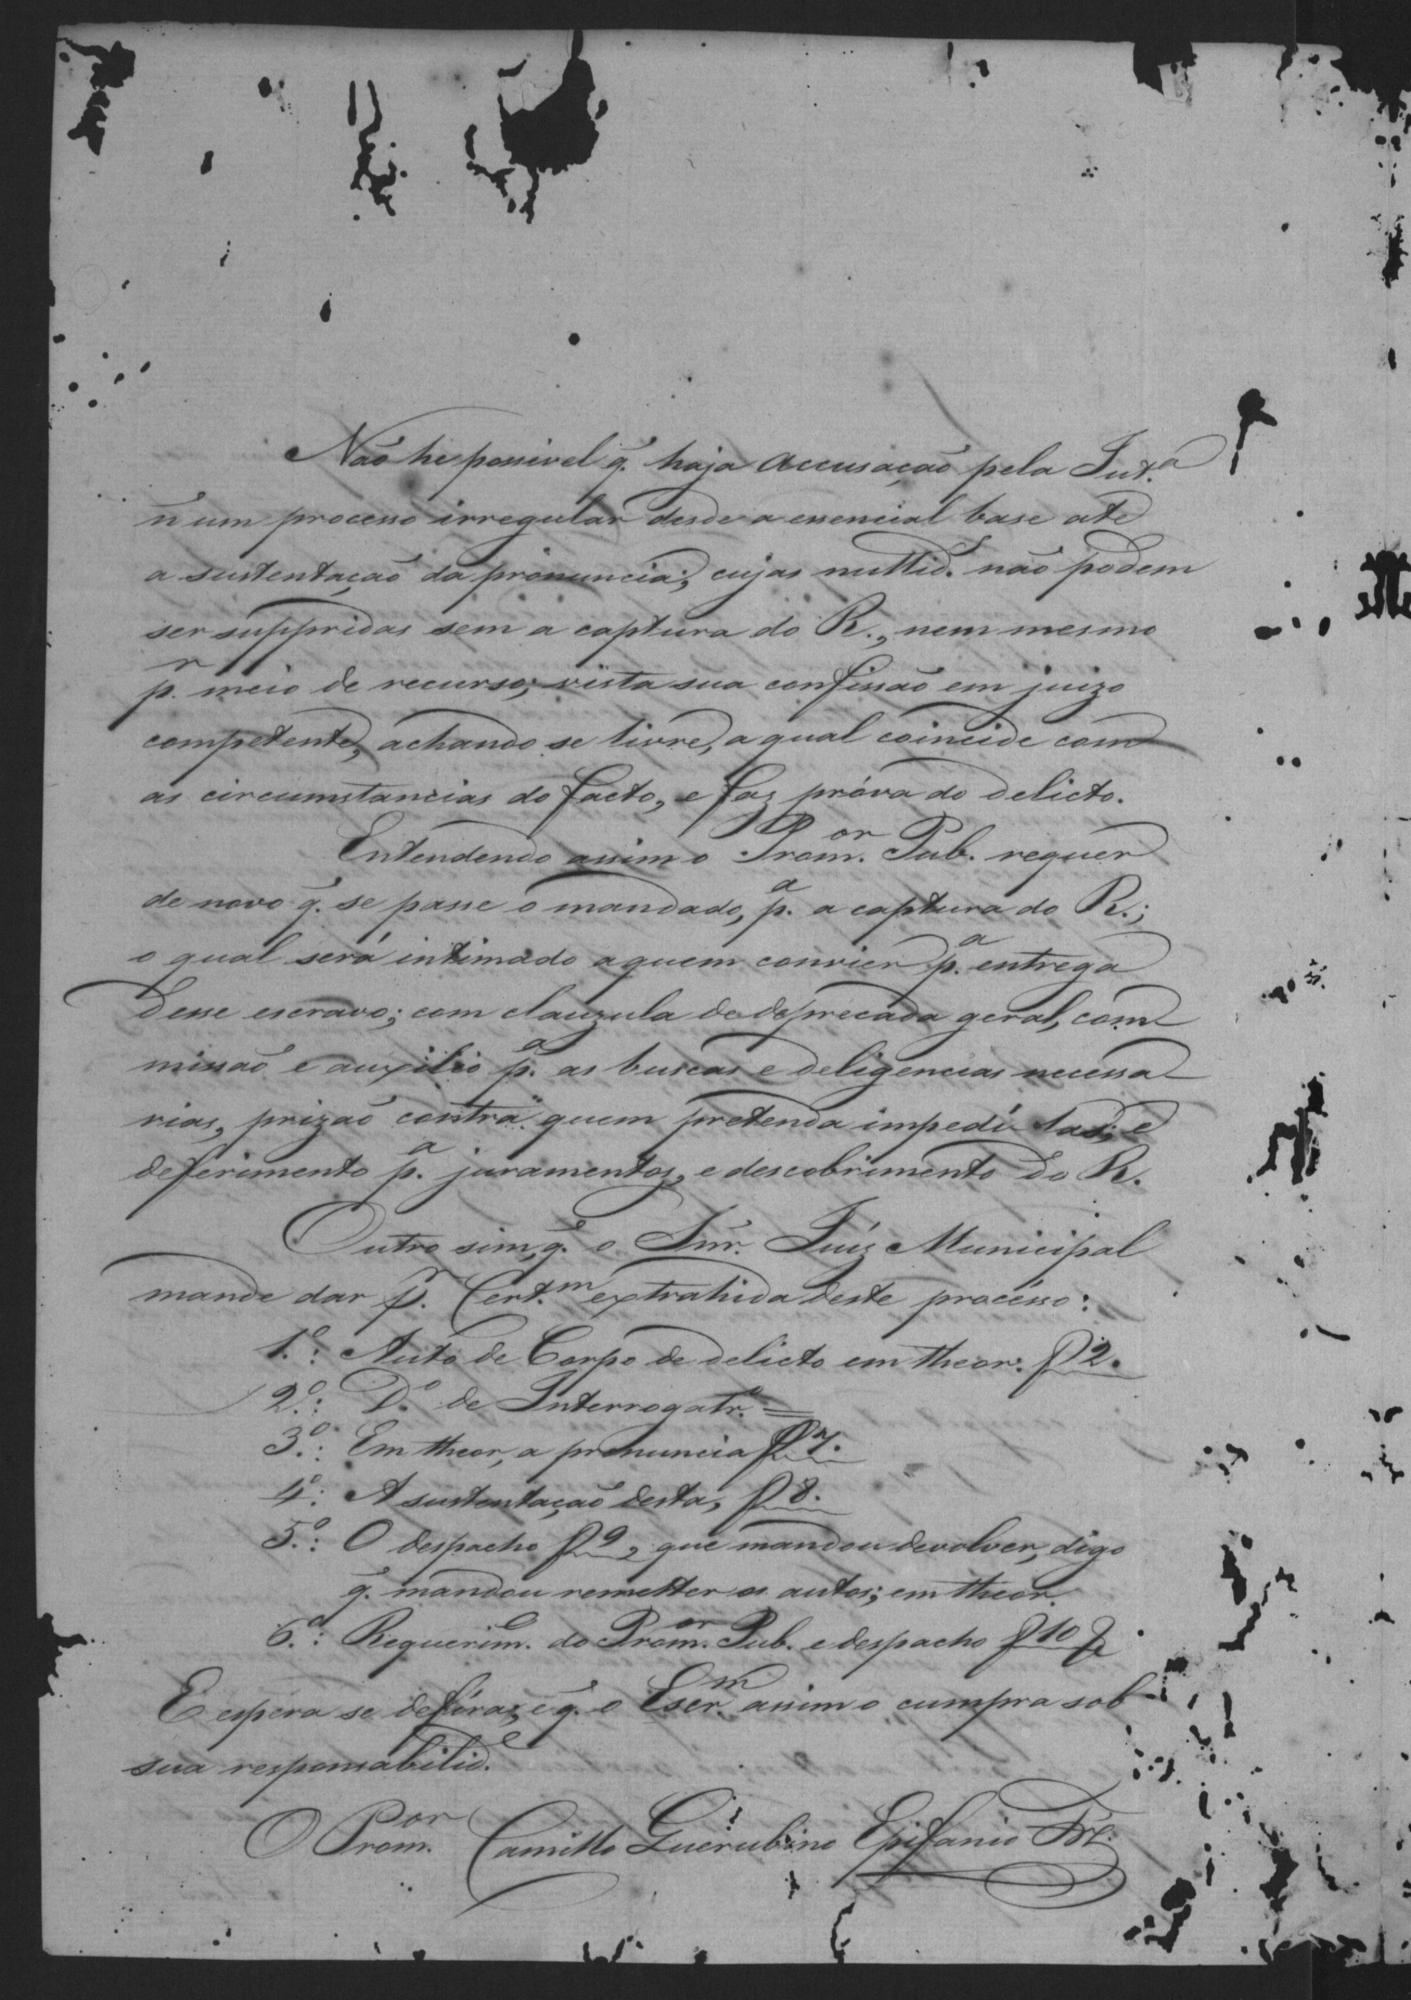 Não he possivel q̃. haja accusação pela Just.ª
n'um processo irregular desde a essencial base até
a sustentação da pronuncia; cujas nullid.es não podem
ser suppridas sem a captura do R., nem mesmo
p.r meio de recurso; vista sua confissão em juizo
competente, achando se livre, a qual coincide com
as circumstancias do facto, e faz próva do delicto.
Entendendo assim o Prom.or Pub. requer
de novo q̃. se passe o mandado, p.ª a captura do R.;
o qual será intimado a quem convier p.ª entrega
desse escravo; com clauzula de deprecada geral, com
missão e auxilio p.ª as buscas e deligencias necessa
rias, prizão contra quem pretenda impedí-las; e
deferimento p.ª juramentos, e descobrimento do R.
Outro sim, q̃. o Snr. Juiz Municipal
mande dar p.r Cert.m extrahida deste procésso:
1.º: Auto de Corpo de delicto em theor. f 2.
2.º: D.º de Interrogatr.º =
3.º: Em theor, a pronuncia f 7.
4.º: A sustentação desta, f 8.
5.º: O despacho f 9, que mandou devolver, digo
q̃. mandou remetter os autos; em theor.
6.º: Requerim.º do Prom.or Pub. e despacho f 10
E espera se defíra; e q̃. o Escr.m assim o cumpra sob
sua responsabilid.e
O Prom.or Camillo Querubino Epifanio Fr.e